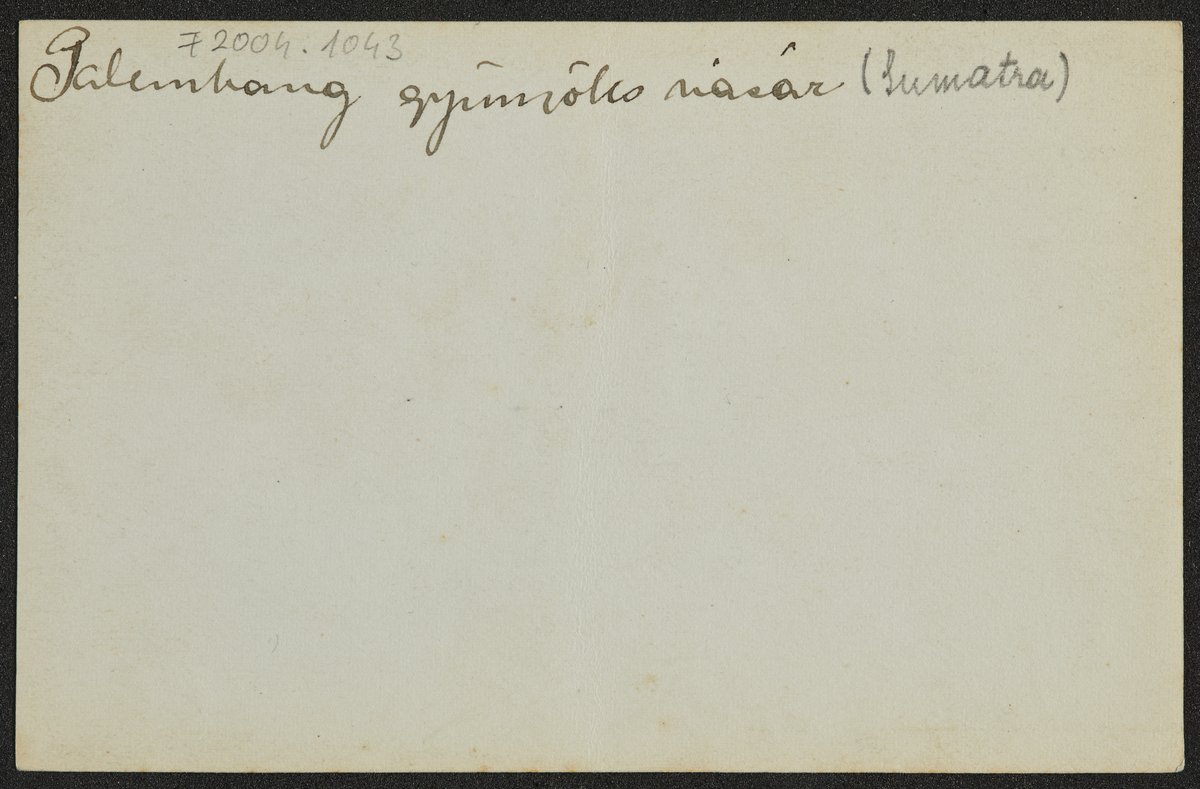 F 2004.1043
Palembang gyümölcs vásár (Sumatra)